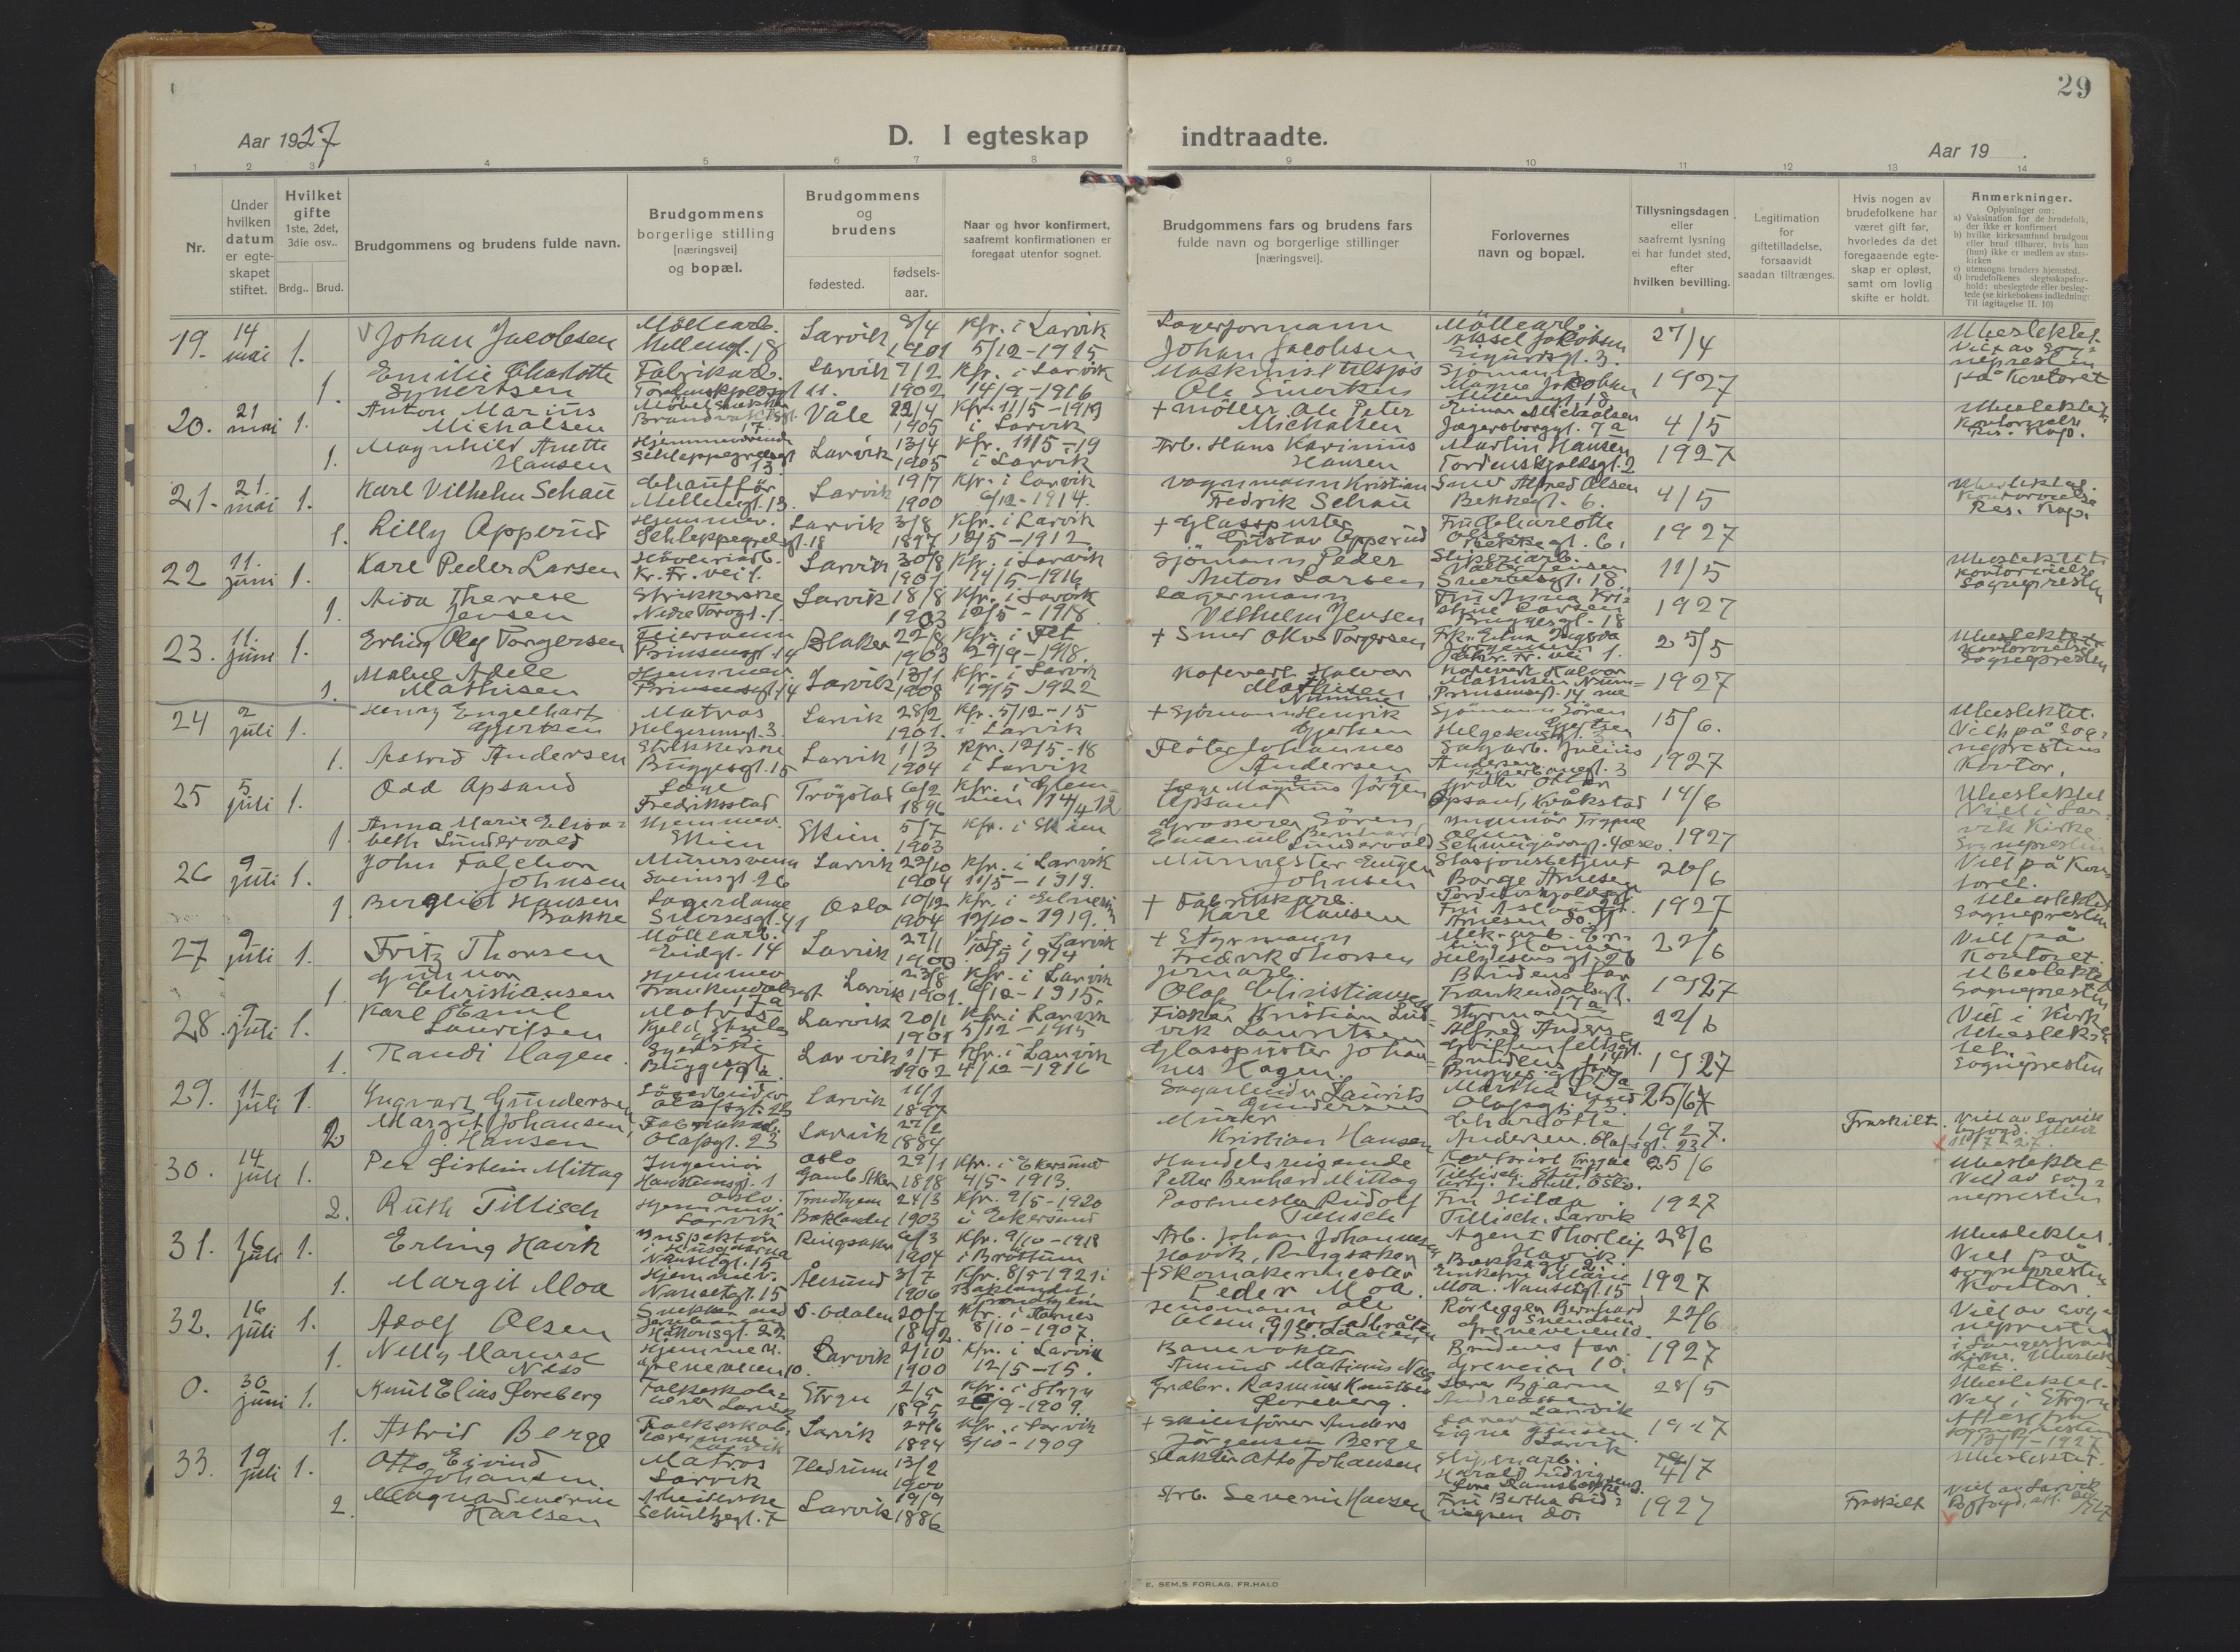 29
Aar 1927
D. I egteskap indtraadte.
Aar 19 .
1 2 3 4 5 6 7 8 9 10 11 12 13 14
Nr.
Under hvilken datum er egte-skapet stiftet.
Hvilket gifte 1ste, 2det, 3die osv..
Brdg.. Brud.
Brudgommens og brudens fulde navn.
Brudgommens borgerlige stilling [næringsvei] og bopæl.
Brudgommens og brudens
fødested.
fødsels-aar.
Naar og hvor konfirmert, saafremt konfirmationen er foregaat utenfor sognet.
Brudgommens fars og brudens fars fulde navn og borgerlige stillinger [næringsvei].
Forlovernes navn og bopæl.
Tillysningsdagen eller saafremt lysning ei har fundet sted, efter hvilken bevilling.
Legitimation for giftetilladelse, forsaavidt saadan tiltrænges.
Hvis nogen av brudefolkene har været gift før, hvorledes da det foregaaende egte-skap er opløst, samt om lovlig skifte er holdt.
Anmerkninger.
Oplysninger om:
a) Vaksination for de brudefolk, der ikke er konfirmert
b) hvilke kirkesamfund brudgom eller brud tilhører, hvis han (hun) ikke er medlem av stats-kirken
c) utensogns bruders hjemsted.
d) brudefolkenes slegtsskapsfor-hold: ubeslegtede eller besleg-tede (se kirkebokens indledning: Til iagttagelse II. 10)
19. 14 mai 1. Johan Jacobsen Möllearb. Möllegt. 18 Larvik 8/4 1901 Kfr. i Larvik 5/12-1915 Lagerformann Johan Jacobsen Möllearb. Aksel Jakobsen Sigurdsgt. 3. 27/4 Ubeslektet.
1. Emilie Charlotte Syvertsen Fabrikarb. Tordenskjoldsgt 11. Larvik 7/2 1902 Kfr. i Larvik 14/9-1916 Maskinist tilsjøs Ole Sivertsen Sjömann Magne Jakobsen Möllegt. 18 1927 på Kontoret
20. 21 mai 1. Anton Marius Michalsen Brandvaktsgt. 17. Våle 22/4 1905 Kfr. 11/5-1919 i Larvik + Möller Ole Peter Michalsen Einar Michalsen Jægersborggt. 7a 4/5 Ubeslektet. Res. Kap.
1. Magnhild Anette Hansen Hjemmeværende Schleppegrelsgt 13 Larvik 13/4 1905 Kfr. 11/5-19 i Larvik Arb. Hans Karinius Hansen Martin Hansen Tordenskjoldsgt. 2 1927
21. 21. mai 1. Karl Vilhelm Schau Chauffør Möllegt. 13. Larvik 19/7 1900 Kfr. i Larvik 6/12-1914. Vognmann Kristian Fredrik Schau Smed Alfred Olsen Bekkegt. 6. 4/5 Ubeslektet. Kontorvielse Res. Kap.
1. Lilly Apperud Hjemmev. Schleppegrelsgt. 18 Larvik 3/8 1897 Kfr. i Larvik 12/5-1912 + Glasspuster Gustav Apperud Fru Charlotte Olsen Bekkegt. 6. 1927
22 11. juni 1. Karl Peder Larsen Høvleriarb. Kr. Fr. vei 1. Larvik 30/8 1901 Kfr. i Larvik 14/5-1916 Sjömann Peder Anton Larsen Sliperiarb. Jensen 18. 11/5 Ubeslektet. Kontorvielse Sognepresten
1. Aida Therese Jensen Strikkerske Nedre Torvgt. 1. Larvik 18/8 1903 Kfr. i Larvik 12/5-1918 Lagermann Vilhelm Jensen Fru Anna Kristine Larsen Bruggesgt. 18 1927
23. 11. juni 1. Erling Olaf Torgersen Feiersvenn Prinsensgt. 14 Blaker 22/8 1903 Kfr. i Fet 29/9-1918. + Smed Olav Torgersen Frk. Edna Ingerda Chr. Fr. vei 1. 25/5 Ubeslektet Kontorvielse Sognepresten
1. Mabel Adele Mathisen Hjemmev. Prinsensgt. 14 Larvik 13/1 1908 Kfr. i Larvik 14/5-1922 Kafévert Halvor Mathisen Numme Kafévert Halvor Mathisen Prinsensgt. 14 1927
24 2 juli 1. Henry Engelhart Gjertsen Matros Helgesensgt. 3. Larvik 28/2 1901. Kfr. 5/12-15 i Larvik + Sjömann Henrik Gjertsen Sjömann Sören Gjertsen Helgesensgt. 3 15/6. Ubeslektet. Viet på Sogneprestens Kontor.
1. Astrid Andersen Strikkerske Bruggesgt. 15 Larvik 1/3 1904 Kfr. 12/5-18 i Larvik Fløter Johannes Andersen Sagarb. Julius Andersen 3 1927
25 5 juli 1. Odd Apsand Læge Fredrikstad Trögstad 6/2 1896 Kfr. i Glemmen 14/4 12 Læge Magnus Jörgen Apsand Apsand, Kråkstad 14/6 Ubeslektet Viet i Larvik Kirke. Sognepresten
1. Anna Marie Elisabeth Sundervald Hjemmev. Skien Skien 5/7 1903 Kfr. i Skien Grosserer Sören Emanuel Bernhard Sundervald Ingeniør Trygve Olsen Schweigårdsgt. 4 Oslo. 1927
26 9 juli 1. John Falchon Johnsen Murersvenn Sveinsgt. 26 Larvik 29/10 1904 Kfr. i Larvik 11/5-1919. Murmester Eugen Johnsen Stasjonsbetjent Borge Arnesen 26/6 Viet på Kontoret. Ubeslektet Sognepresten
1. Bergliot Hansen Bakke Lagerdame 41 Oslo 10/12 1904 Kfr. i 12/10-1919. + Fabrikkarb. Karl Hansen Fru Arnesen do. 1927
27 9 juli 1. Fritz Thorsen Möllearb. Eidgt. 14 Larvik 27/1 1900 Kfr. i Larvik 10/5 1914 + Styrmann Fredrik Thorsen Mek. arb. Erling Hansen Helgesens gt. 26 22/6 Viet på Kontoret. Ubeslektet Sognepresten
1. Gunvor Christiansen Hjemmev. Frankendalsgt 17a Larvik 23/8 1901. Kfr. i Larvik 6/12-1915. Jernarb. Olaf Christiansen Brudens far Frankendalsgt. 17a 1927
28. 9 juli 1. Karl Emil Lauritsen Matros Larvik 20/1 1901 Kfr. i Larvik 5/12-1915 Fisker Kristian Ludvik Lauritsen Styrmann Alfred Anders 22/6 Viet i Kirken Ubeslektet. Sognepresten
1. Randi Hagen. Syerske Buggesgt 19a. Larvik 1/7 1902 Kfr. i Larvik 4/12-1916 Glasspuster Johannes Hagen. Brudens far 1927
29. 11 juli 1. Ingvart Gundersen Olafsgt. 23 Larvik 11/1 1897 Sagarbeider Laurits Gundersen Olafsgt. 23. 25/6 27
2 Margit Johansen, f. Hansen Fabrikarb. Olafsgt. 23 Larvik 27/2 1884 Murer Kristian Hansen Charlotte Andersen. Olafsgt. 23 1927. Fraskilt. Viet av Larvik byfogd.
30. 14 juli 1. Per Eistein Mittag Ingeniør 1 Oslo. Oslo Gamle Aker 29/1 1898 Kfr. i Ekersund 4/5-1913. Handelsreisende Petter Bernhard Mittag Trygve Tillisch Oslo. 25/6 Ubeslektet Viet av sognepresten
2. Ruth Tillisch Hjemmev. Larvik Trondhjem Baklandet 24/3 1903 Kfr. 2/5-1920 i Ekersund Postmester Rudolf Tillisch Fru Hilda Tillisch. Larvik 1927
31. 16 juli 1. Erling Havik Inspektör Nansetgt. 15 Ringsaker 6/3 1904 Kfr. 9/10-1918 i Brøttum Arb. Johan Johannesen Havik, Ringsaker Agent Thorleif Havik. Bekkegt. 2. 28/6 Ubeslektet. Viet på sogneprestens Kontor.
1. Margit Moa Hjemmev. Nansetgt. 15 Ålesund 3/7 1906 Kfr. 8/5-1921 i Baklandet, Trondhjem + Skomakermester Peder Moa. Enkefru Marie Moa. Nansetgt. 15 1927
32. 16 juli 1. Adolf Olsen Snekker ved Jernbanen Håkonsgt. 22 S. Odalen 20/7 1892. Kfr. i Aarnes 8/10-1907. Husmann Ole Olsen S. Odalen Rörlegger Bernhard Svendsen Greveveien 10. 22/6 Viet av Sognepresten i Langestrand Kirke. Ubeslektet.
1. Nelly Marense Næss Hjemmev. Greveveien 10. Larvik 2/10 1900 Kfr. i Larvik 12/5-15. Banevokter Amund Martinius Næss Brudens far. Greveien 10. 1927
0. 30 juni 1. Knut Elias Øvreberg Folkeskolelærer Larvik Stryn 2/5 1895 Kfr. i Stryn 26/9-1909. Gradbr. Rasmus Knutsen Øvreberg. Lærer Bjarne Andreassen Larvik 28/5 Ubeslektet. Viet i Stryn
1. Astrid Berge Folkeskolelærerinne Larvik Larvik 24/6 1894 Kfr. i Larvik 3/10-1909 + Skibsförer Anders Jörgensen Berge Lærerinne Signe Jensen. Larvik 1927
33. 19 juli 1. Otto Eivind Johansen. Matros Larvik Hedrum 13/2 1900 Slakter Otto Johansen Sliperiarb. Harald Ludvigsen 4/7 Ubeslektet.
2. Magna Severine Karlsen Arbeiderske Schultzegt. 7 Larvik 19/9 1886 Arb. Severin Hansen Fru Bertha Ludvigsen do. 1927 Fraskilt Viet av Larvik Byfogd,
E. SEM,S FORLAG, FR.HALD